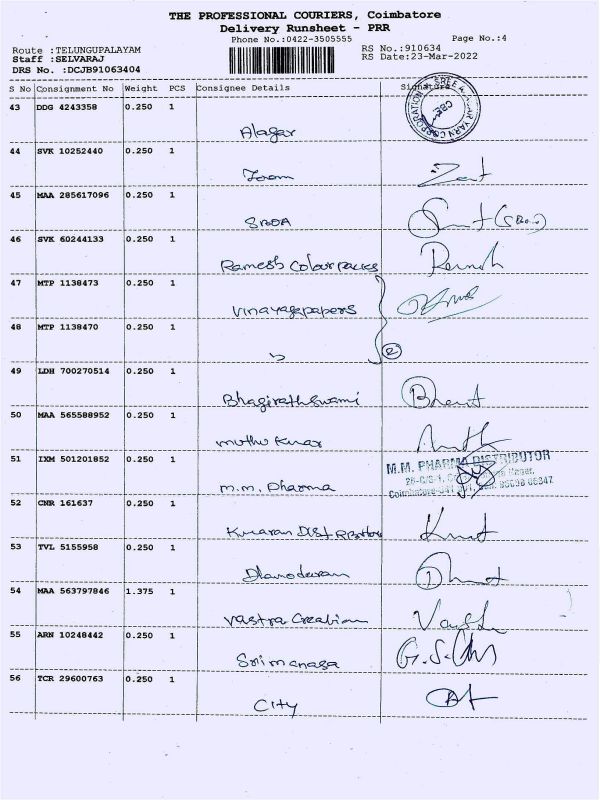 THE PROFESSIONAL COURIERS, Coimbatore
Delivery Runsheet - PRR
Phone No.:0422-3505555 Page No.:4
Route :TELUNGUPALAYAM RS No.:910634
Staff :SELVARAJ RS Date:23-Mar-2022
DRS No. :DCJB91063404
S No Consignment No Weight PCS Consignee Details Signature
43 DDG 4243358 0.250 1
Alagar
44 SVK 10252440 0.250 1
45 MAA 285617096 0.250 1
46 SVK 60244133 0.250 1
Ramesh Colour packs
47 MTP 1138473 0.250 1
Vinayagapapers
48 MTP 1138470 0.250 1
2
49 LDH 700270514 0.250 1
Bhagirathswami
50 MAA 565588952 0.250 1
muthu Kumar
51 IXM 501201852 0.250 1
M.M. PHARMA DISTRIBUTOR
m.m. Pharma
52 CNR 161637 0.250 1
Kumaran
53 TVL 5155958 0.250 1
54 MAA 563797846 1.375 1
Vastra Creation
55 ARN 10248442 0.250 1
Srimanasa
56 TCR 29600763 0.250 1
City